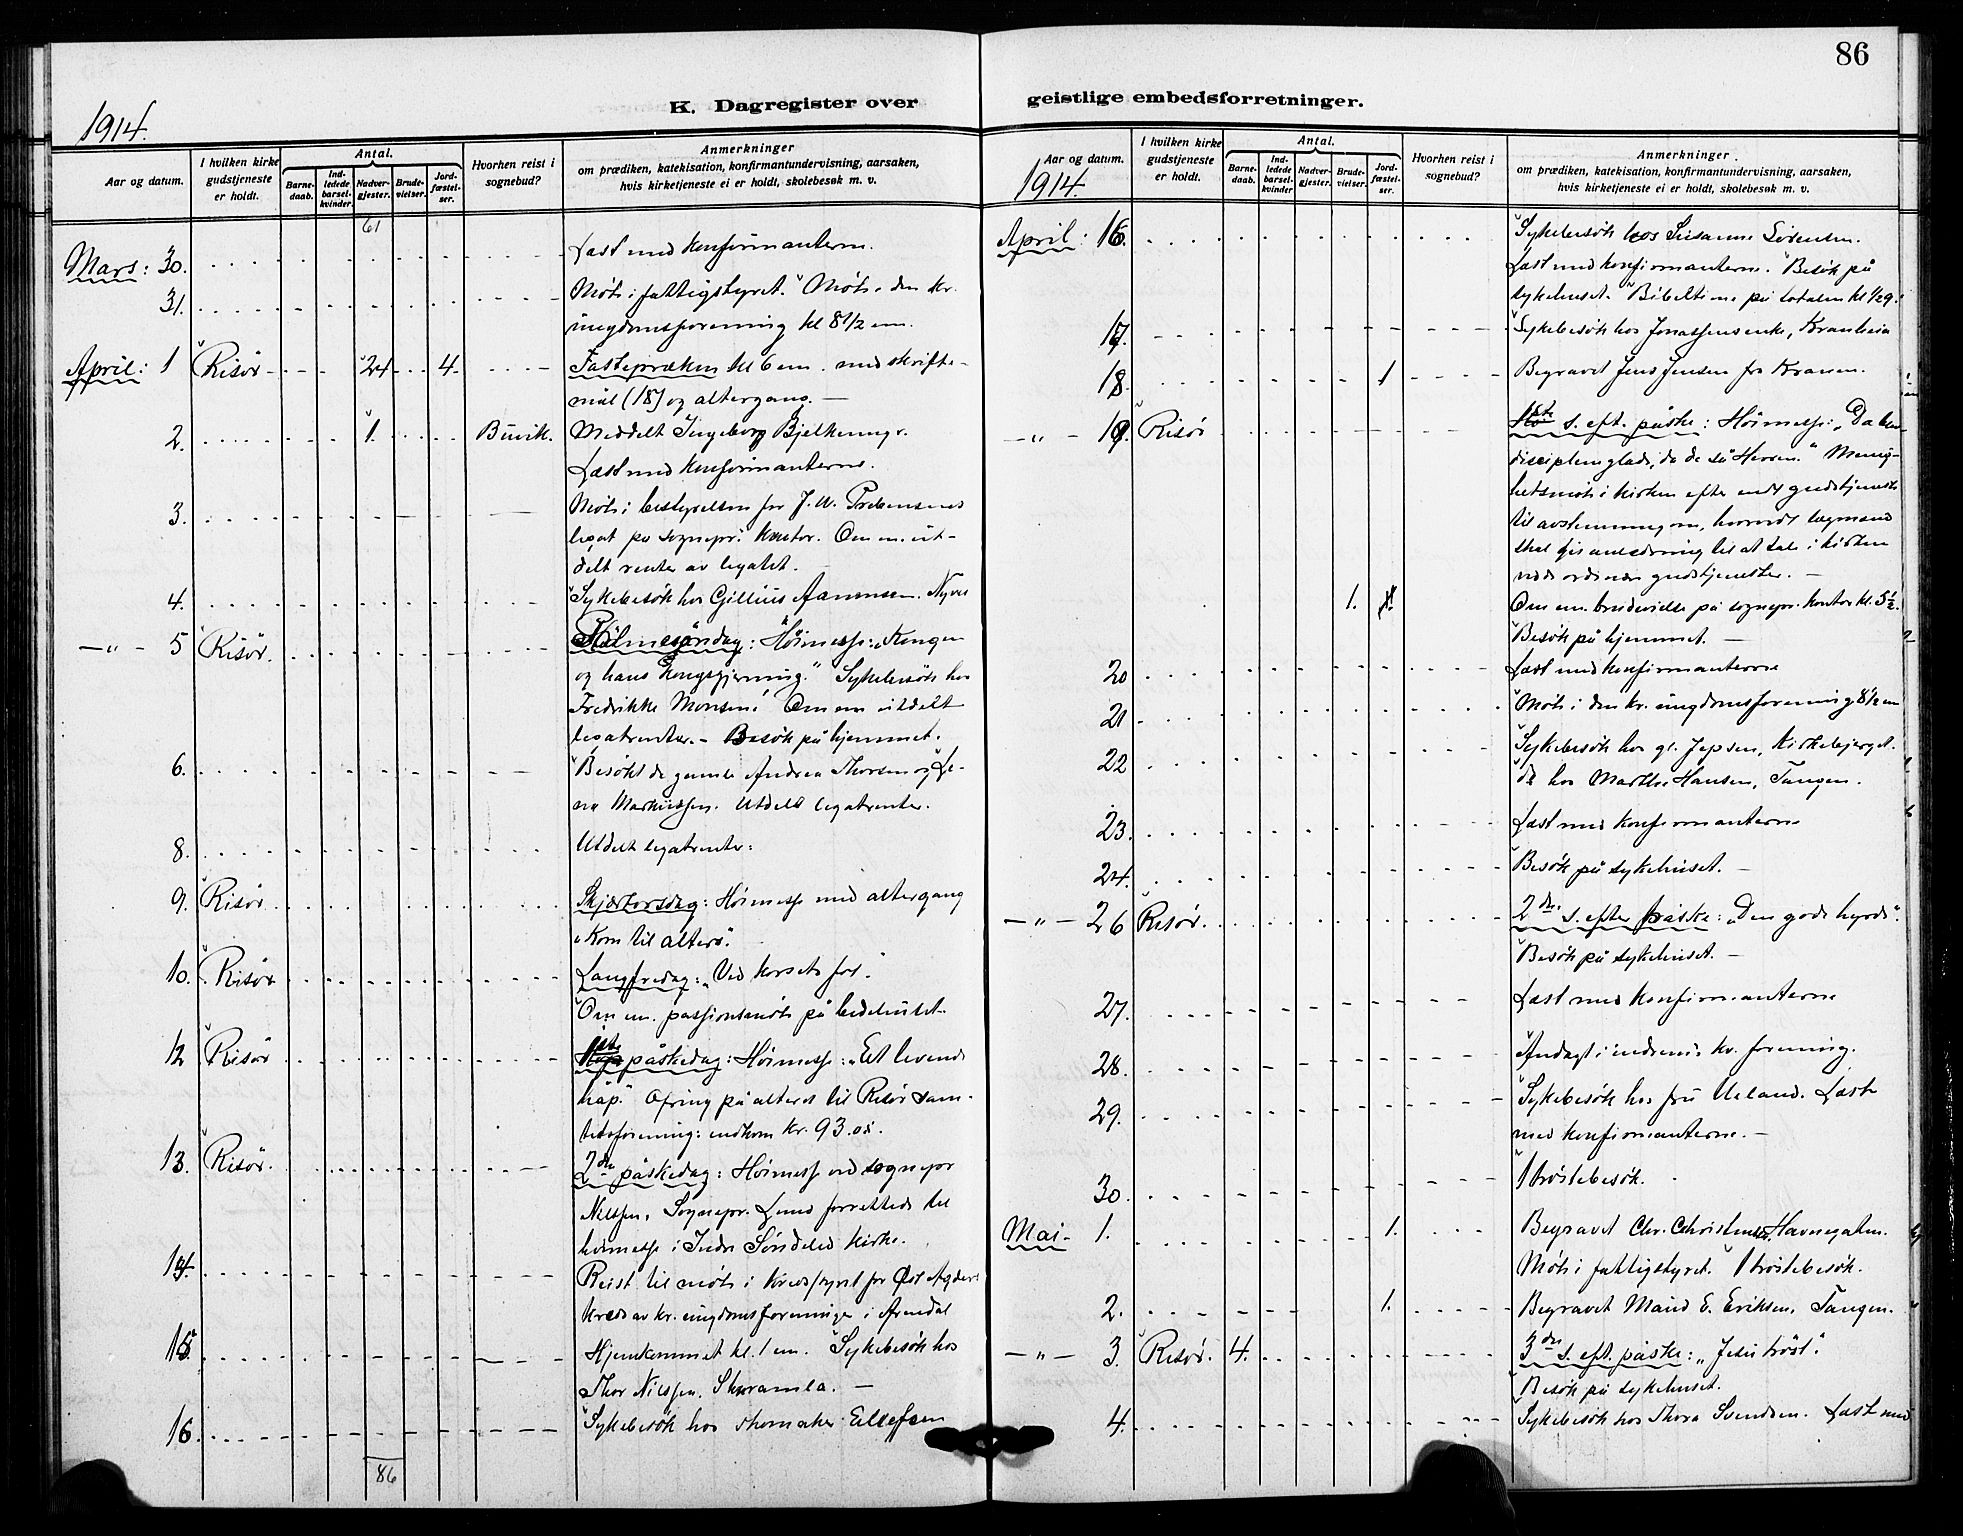 86
K. Dagregister over geistlige embedsforretninger.
1914.
Aar og datum.
I hvilken kirke gudstjeneste er holdt.
Antal.
Barne-daab.
Ind-ledede barsel-kvinder.
Nadver-gjester.
Brude-vielser.
Jord-fæstel-ser.
Hvorhen reist i sognebud?
Anmerkninger
om prædiken, katekisation, konfirmantundervisning, aarsaken,
hvis kirketjeneste ei er holdt, skolebesøk m. v.
61
Mars: 30. Læst med konfirmanterne.
31. Möte i fattigstyret. Möte i den kr.
ungdomsforening kl 8 1/2 em.
April: 1 Risör 24 4. Fastepræken kl 6 em. med skrifte-
mål (18) og altergang. —
2. 1. Buvik. Meddelt Ingeborg
Læst med konfirmanterne.
3. Möte i bestyrelsen for J. W. Prebensens
legat på sognepr. kontor. Om em. ut-
delt renter av legatet.
4. Sykebesök hos Gillius Aanonsen.
—"— 5 Risör. Palmesöndag: Höimesse: "Kongen
og hans kongsgjerning." Sykebesök hos
Fredrikke Monsen. Om em utdelt
legatrenter. - Besök på hjemmet.
6. Besökt de gamle Andrea Thorsen og Le-
na Markussen. Utdelt legatrenter.
8. Utdelt legatrenter.
9. Risör Skjærtorsdag: Höimesse med altergang
"Kom til alters".
10. Risör Langfredag: "Ved korsets fot".
Om em. passionsmöte på bedehuset.
12 Risör 1ste påskedag: Höimesse: "Et levende
håp." Ofring på alteret til Risör sam-
tidsforening: indkom kr. 93.05.
13. Risör. 2den påskedag: Höimesse ved sognepr
Nilssen. Sognepr. Lund forrettede
höimesse i Indre Söndeled kirke.
14. Reist til möte i kredsstyret for Øst Agder
kreds av kr. ungdomsforeninger i Arendal
15. Hjemkommet kl. 1 em. Sykebesök hos
Thor Nilssen,
16. Sykebesök hos skomaker Ellefsen
86
Aar og datum.
1914.
I hvilken kirke gudstjeneste er holdt.
Antal.
Barne-daab.
Ind-ledede barsel-kvinder.
Nadver-gjester.
Brude-vielser.
Jord-fæstel-ser.
Hvorhen reist i sognebud?
Anmerkninger
om prædiken, katekisation, konfirmantundervisning, aarsaken,
hvis kirketjeneste ei er holdt, skolebesøk m. v.
April: 16. Sykebesök hos Susanne Sörensen.
Læst med konfirmanterne. Besök på
sykehuset. Bibeltime på totalen kl 1/2 9.
17. Sykebesök hos Jonassens enke,
18. 1 Begravet Jens Jensen fra Kranen.
—"— 19. Risör 1ste s. eft. påske: Höimesse: "Da blev
disciplene glade, da de så Herren." Menig-
hetsmöte i kirken efter endt gudstjeneste
til avstemning om, hvorvidt lægmænd
skal gis anledning til at tale i kirken
ved ordinær gudstjenester. —
1. Om em. brudevielse på sognepr. kontor kl. 5 1/2.
Besök på hjemmet. —
20 Læst med konfirmanterne
21 Möte i den kr. ungdomsforening 8 1/2 em
22 Sykebesök hos gl. Jepsen, Kirkebjerget.
do hos Marthe Hansen, Tangen.
23. Læst med konfirmanterne
24. Besök på sykehuset. —
—"— 26 Risör. 2den s. efter påske: "Den gode hyrde".
Besök på sykehuset. —
27. Læst med konfirmanterne
28. Andagt i kr. forening.
29. Sykebesök hos fru Ueland. Læst
med konfirmanterne. —
30. 1 tröstebesök.
Mai. 1. 1. Begravet Chr. Christensen, Havnegaten.
Möte i fattigstyret. 1 tröstebesök.
2. 1. Begravet Maud E. Eriksen, Tangen.
—"— 3. Risör. 4. 3die s. eft. påske: "Jesu tröst".
Besök på sykehuset.
4. Sykebesök hos Thora Svendsen. Læst med